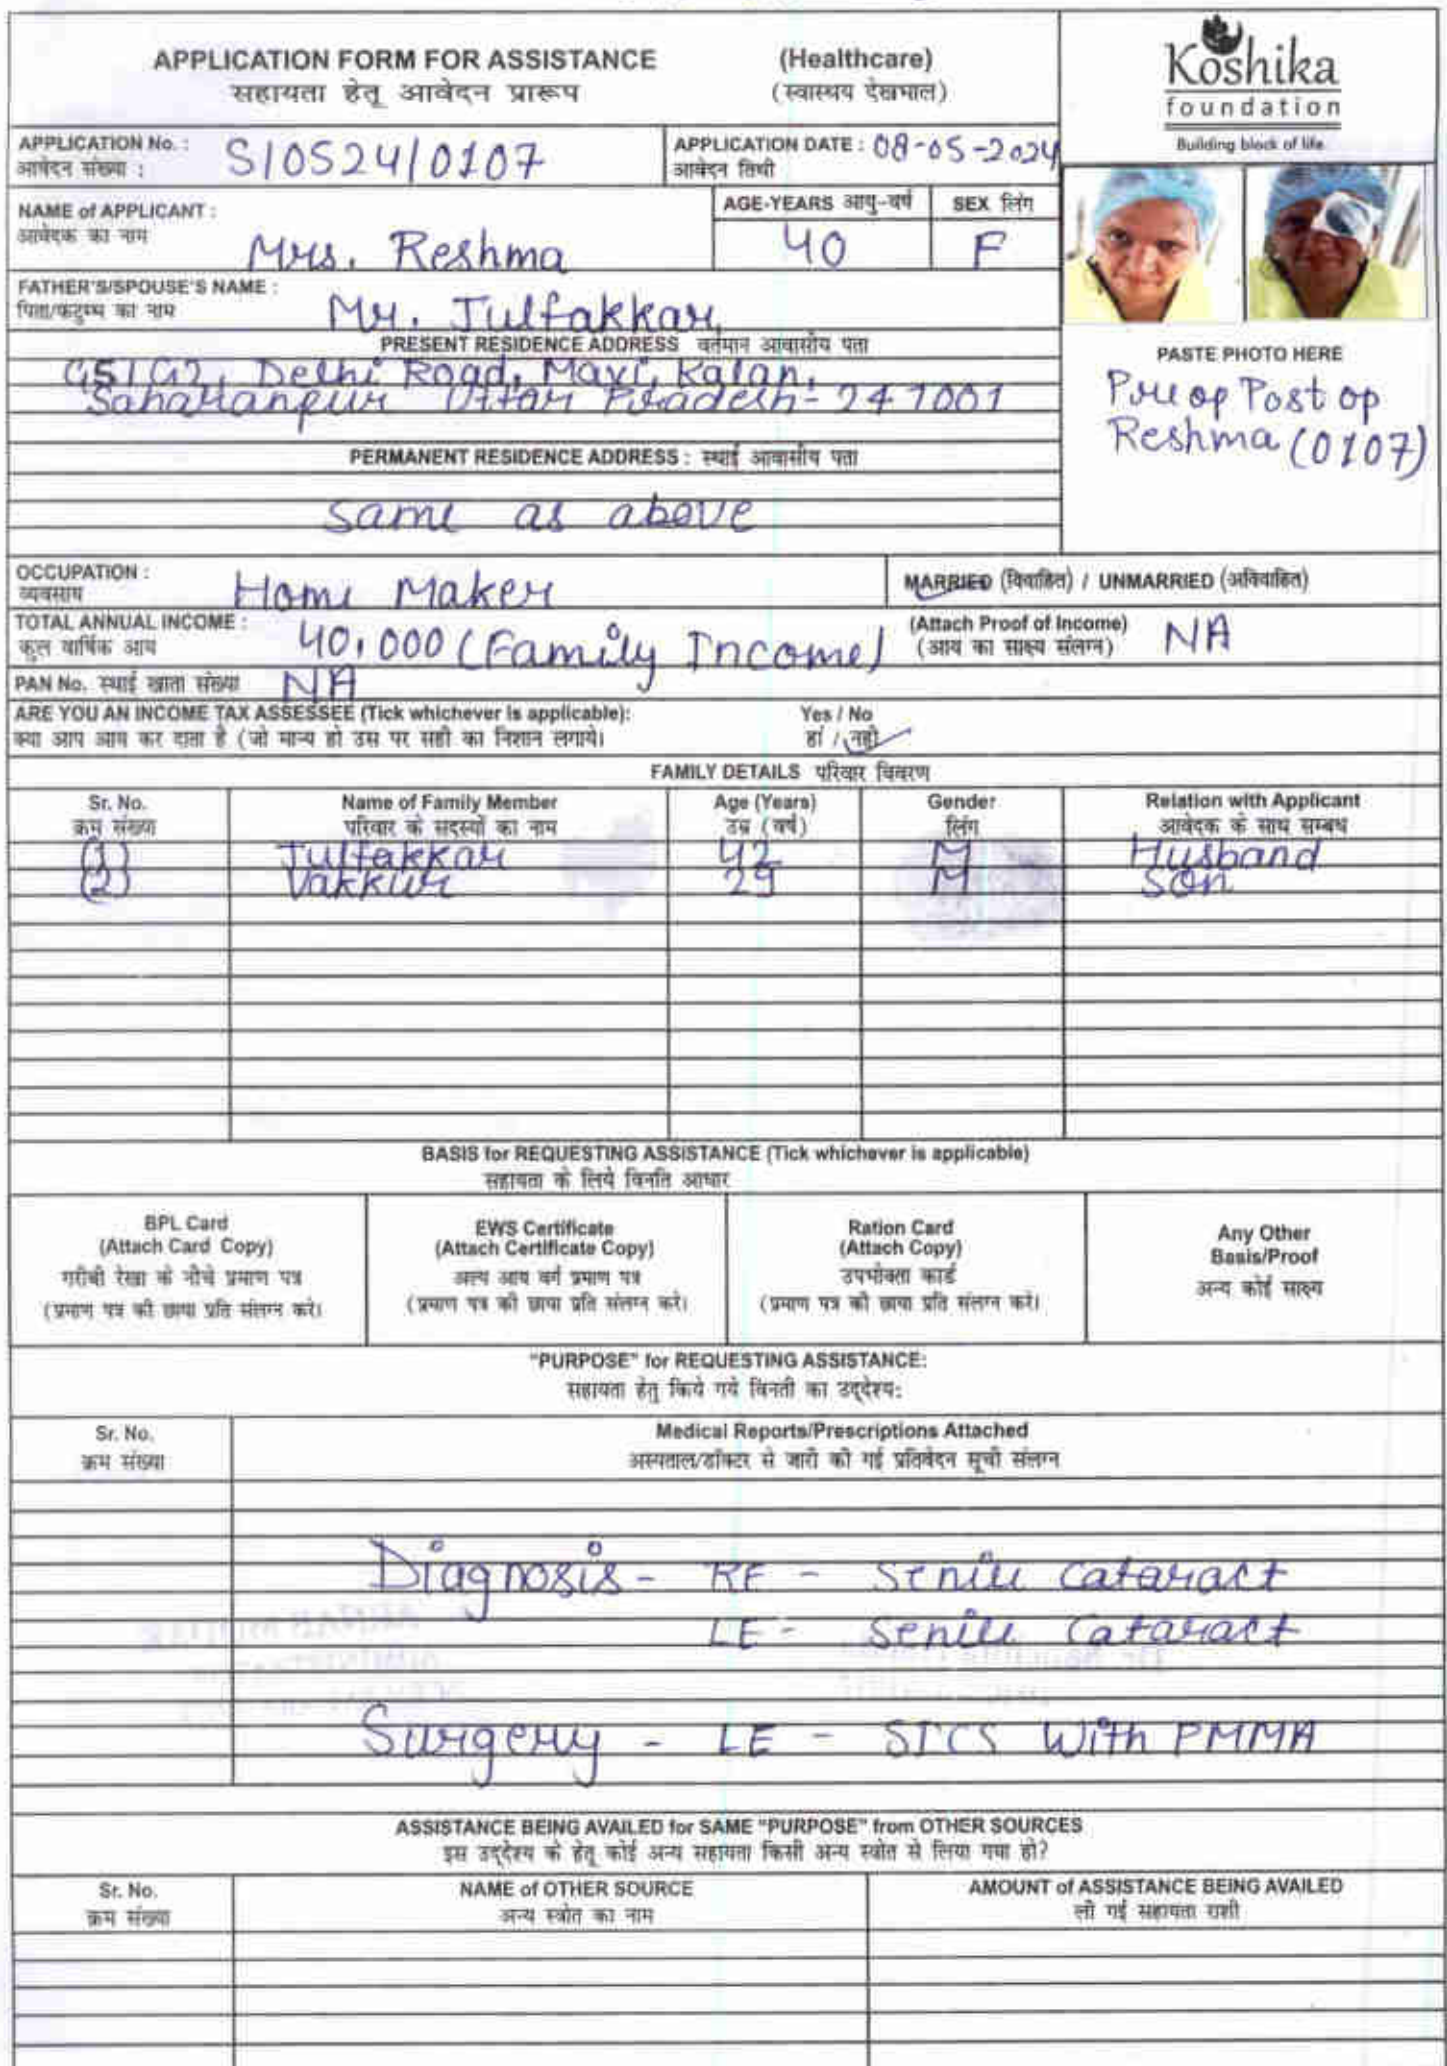 APPLICATION FORM FOR ASSISTANCE (Healthcare)
सहायता हेतू आवेदन प्रारूप (स्वास्थय देखभाल)
Koshika
foundation
Building block of life
APPLICATION No. : S/0524/0107
आवेदन संख्या :
APPLICATION DATE : 08-05-2024
आवेदन तिथी
NAME of APPLICANT : Mrs. Reshma
आवेदक का नाम
AGE-YEARS आयु-वर्ष 40
SEX लिंग F
FATHER'S/SPOUSE'S NAME : Mr. Julfakkar
पिता/कटुम्ब का नाम
PRESENT RESIDENCE ADDRESS वर्तमान आवासीय पता
Delhi Road, Mavi, Kalan,
Saharanpur Uttar Pradesh- 247001
PASTE PHOTO HERE
Pre op Post op
Reshma (0107)
PERMANENT RESIDENCE ADDRESS : स्थाई आवासीय पता
same as above
OCCUPATION : Home Maker
व्यवसाय
MARRIED (विवाहित) / UNMARRIED (अविवाहित)
TOTAL ANNUAL INCOME : 40,000 (Family Income)
कुल वार्षिक आय
(Attach Proof of Income) NA
(आय का साक्ष्य संलग्न)
PAN No. स्थाई खाता संख्या NA
ARE YOU AN INCOME TAX ASSESSEE (Tick whichever is applicable): Yes / No
क्या आप आय कर दाता है (जो मान्य हो उस पर सही का निशान लगाये। हां / नही
FAMILY DETAILS परिवार विवरण
Sr. No. Name of Family Member Age (Years) Gender Relation with Applicant
क्रम संख्या परिवार के सदस्यों का नाम उम्र (वर्ष) लिंग आवेदक के साथ सम्बध
(1) Julfakkar 42 M Husband
(2) Vakkur 29 M Son
BASIS for REQUESTING ASSISTANCE (Tick whichever is applicable)
सहायता के लिये विनति आधार
BPL Card
(Attach Card Copy)
गरीबी रेखा के नीचे प्रमाण पत्र
(प्रमाण पत्र की छाया प्रति संलग्न करे।
EWS Certificate
(Attach Certificate Copy)
अल्प आय वर्ग प्रमाण पत्र
(प्रमाण पत्र की छाया प्रति संलग्न करे।
Ration Card
(Attach Copy)
उपभोक्ता कार्ड
(प्रमाण पत्र की छाया प्रति संलग्न करे।
Any Other
Basis/Proof
अन्य कोई साक्ष्य
"PURPOSE" for REQUESTING ASSISTANCE:
सहायता हेतु किये गये विनती का उद्देश्य:
Sr. No. Medical Reports/Prescriptions Attached
क्रम संख्या अस्पताल/डॉक्टर से जारी की गई प्रतिवेदन सूची संलग्न
Diagnosis - RE - Senile Cataract
LE - Senile Cataract
Surgery - LE - SICS With PMMA
ASSISTANCE BEING AVAILED for SAME "PURPOSE" from OTHER SOURCES
इस उद्देश्य के हेतू कोई अन्य सहायता किसी अन्य स्त्रोत से लिया गया हो?
Sr. No. NAME of OTHER SOURCE AMOUNT of ASSISTANCE BEING AVAILED
क्रम संख्या अन्य स्त्रोत का नाम ली गई सहायता राशी